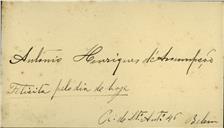 Antonio Henriques d'Assumpção
Felicita pelo dia de hoje
R. de Stº Antº 46 Belem